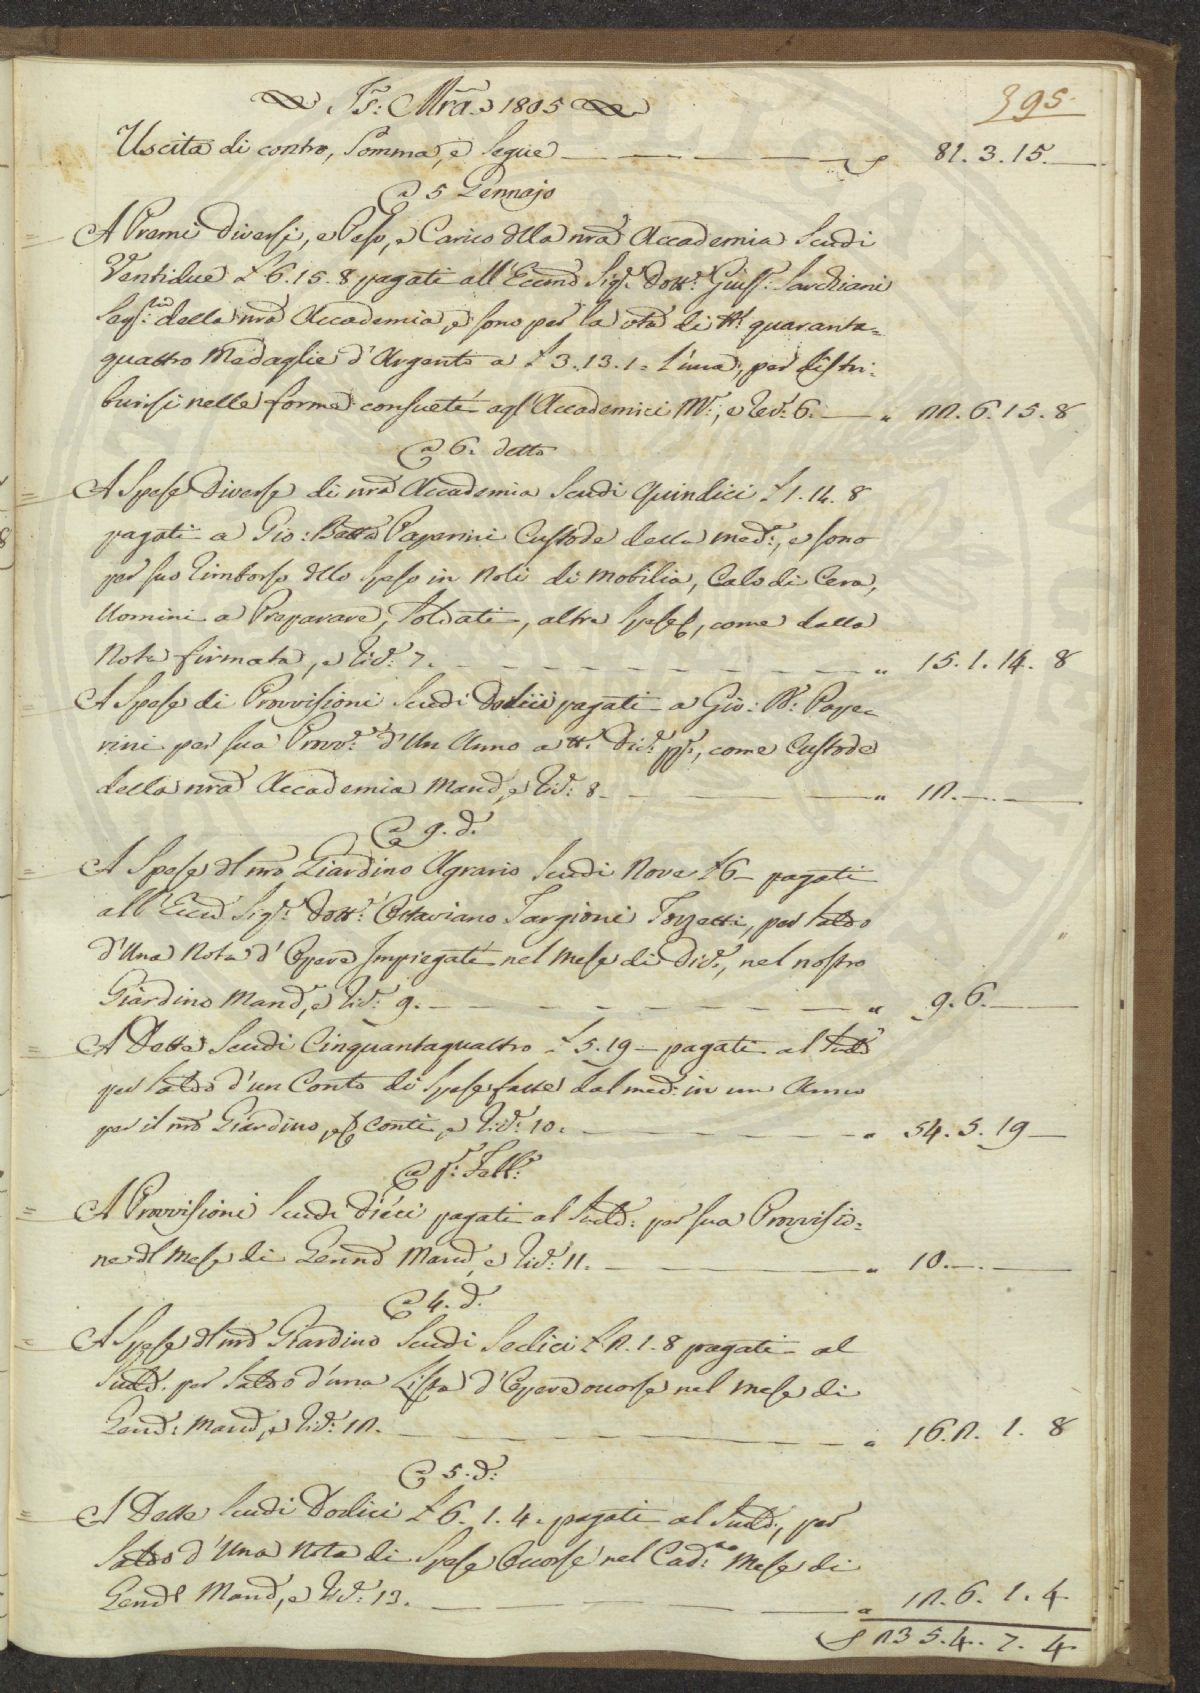 Js: Mra. 1805
395.
Uscita di contro, Somma, e Segue — — — — S 81. 3. 15. —
A 5 Gennajo
A Premi Diversi, e Peso, e Carico dlla nrã Accademia Scudi
Ventidue £ 6. 15. 8 pagati all' Eccmo Sigr. Dottr. Giusp. Sarchiani
Segrio. della nrã Accademia, e sono per la vtã di N. quaranta-
quattro Medaglie d'Argento a £ 3. 13. 1 = l'una, per distri-
buirsi nelle forme consuete agl' Accademici Mo., e Ricv. 6. — " 22. 6. 15. 8
A 6. detto
A Spese Diverse di nrã Accademia Scudi Quindici £ 1. 14. 8
pagati a Gio: Batta Paperini Custode della med., e sono
per suo Rimborso dllo Speso in Noli di Mobilia, Calo di Cera,
Uomini a Preparare, Soldati, altre Spese, come dalla
Nota firmata, e Ricv. 7. — — — — " 15. 1. 14. 8
A Spese di Provvisioni Scudi Dodici pagati a Gio: Ba. Pape-
rini per sua Provve. d'Un Anno a tt. Dice. pp., come Custode
della nrã Accademia Mand., e Ricv: 8. — — — " 12. — —
A 9. d.
A Spese dl nrõ Giardino Agrario Scudi Nove £ 6 — pagati
all' Eccmo Sigr. Dottr. Ottaviano Targioni Tozzetti, per Saldo
d'Una Nota d'Opere Impiegate nel Mese di Dice., nel nostro
Giardino Mand., e Ricv. 9. — — — — " 9. 6. —
A Dette Scudi Cinquantaquattro £ 5. 19 — pagati al Sudd.
per Saldo d'un Conto di Spese fatte dal med. in un Anno
per il nrõ Giardino, e Conti, e Ricv. 10. — — — " 54. 5. 19 —
A po. Febbo.
A Provvisioni Scudi Dieci pagati al Sudd: per sua Provvisio-
ne dl Mese di Genno Mand., e Ricv: 11. — — — " 10. — —
A 4. d.
A Spese dl nrõ Giardino Scudi Sedici £ 2. 1. 8 pagati al
Sudd. per Saldo d'una Lista d'Opere occorse nel Mese di
Genno: Mand., e Ricv: 12. — — — " 16. 2. 1. 8
A 5. d.
A Dette Scudi Dodici £ 6. 1. 4. pagati al Sudd., per
Saldo d'Una Nota di Spese Occorse nel Cado. Mese di
Genno Mand., e Ricv. 13. — — — " 12. 6. 1. 4
S 235. 4. 7. 4